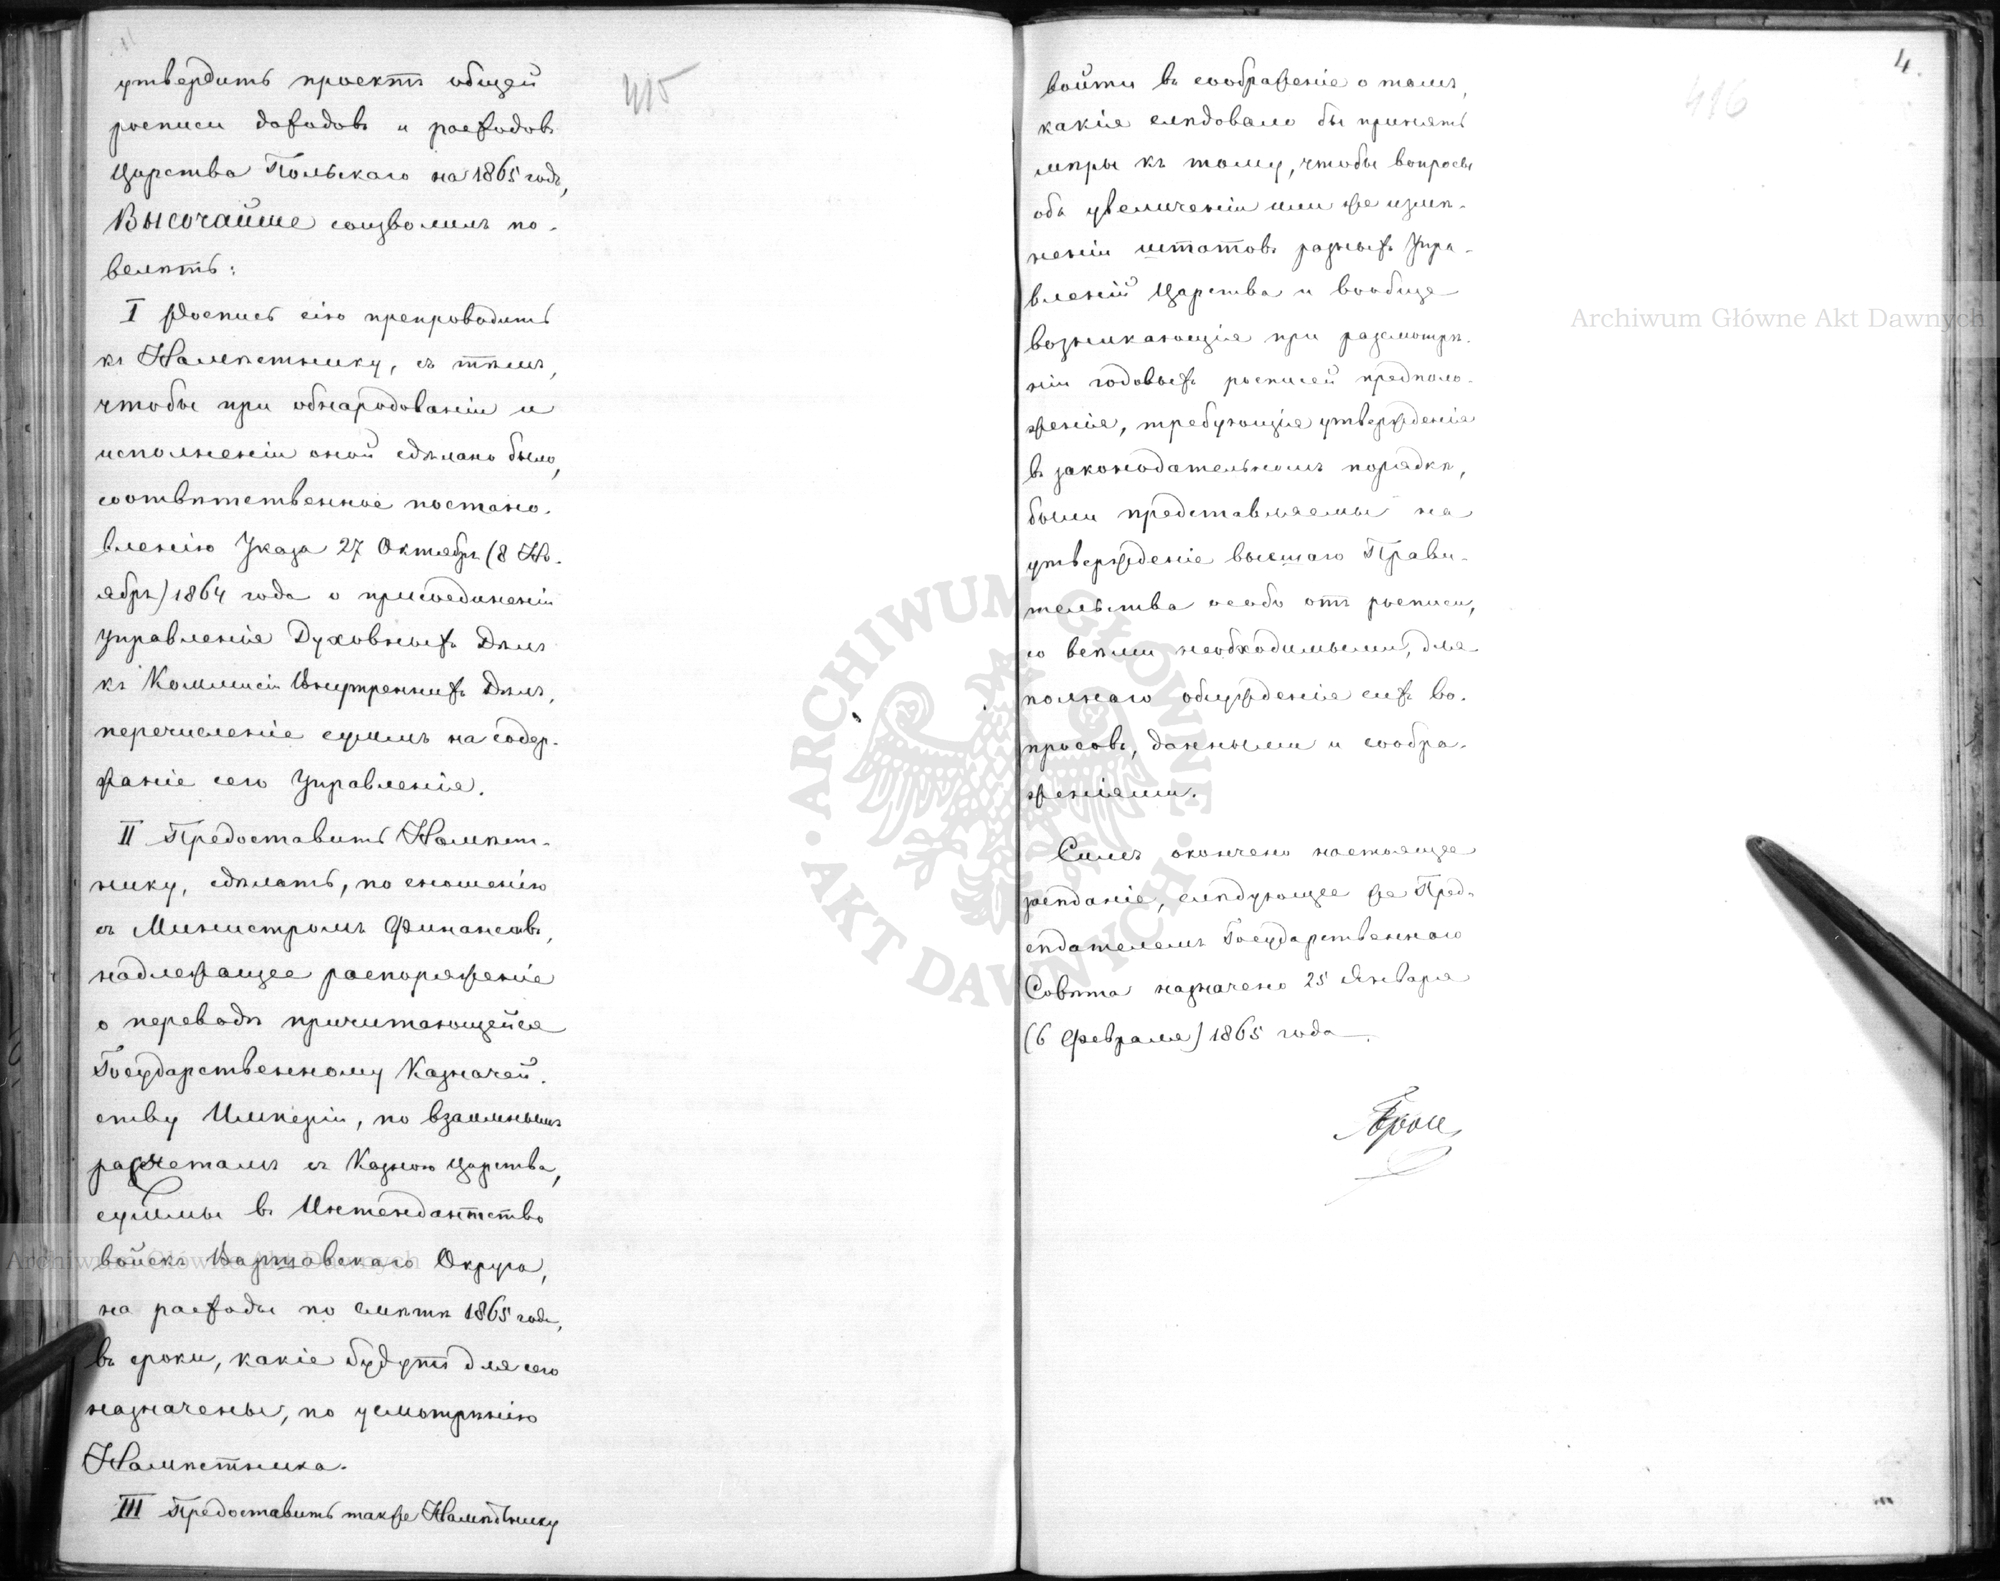 415
утвердить проектъ общей
росписи доходовъ и расходовъ
Царства Польскаго на 1865 годъ,
Высочайше соизволилъ по-
велѣть:
I Роспись сію препроводить
къ Намѣстнику, съ тѣмъ,
чтобы при обнародованіи и
исполненіи оной сдѣлано было,
соотвѣтственное постано-
вленію Указа 27 Октября (8 Но-
ября) 1864 года о присоединеніи
Управленія Духовныхъ Дѣлъ
къ Коммисіи Внутреннихъ Дѣлъ,
перечисленіе суммъ на содер-
жаніе сего Управленія.
II Предоставить Намѣст-
нику, сдѣлать, по сношенію
съ Министромъ Финансовъ,
надлежащее распоряженіе
о переводѣ причитающейся
Государственному Казначей-
ству Имперіи, по взаимнымъ
разчетамъ съ Казною Царства,
суммы въ Интендантство
войскъ Варшавскаго Округа,
на расходы по смѣтѣ 1865 года,
въ сроки, какіе будутъ для сего
назначены, по усмотрѣнію
Намѣстника.
III Предоставить также Намѣстнику
4.
416
войти въ соображеніе о томъ,
какія слѣдовало бы принять
мѣры къ тому, чтобы вопросы
объ увеличеніи или же измѣ-
неніи штатовъ разныхъ Упра-
вленій Царства и вообще
возникающія при разсмотрѣ-
ніи годовыхъ росписей предполо-
женія, требующія утвержденія
въ законодательномъ порядкѣ,
были представляемы на
утвержденіе высшаго Прави-
тельства особо отъ росписи,
со всѣми необходимыми, для
полнаго обсужденія сихъ во-
просовъ, данными и сообра-
женіями.
Симъ окончено настоящее
засѣданіе, слѣдующее же Пред-
сѣдателемъ Государственнаго
Совѣта назначено 25 Января
(6 Февраля) 1865 года.
Archiwum Główne Akt Dawnych
Archiwum Główne Akt Dawnych
ARCHIWUM GŁÓWNE · AKT DAWNYCH ·